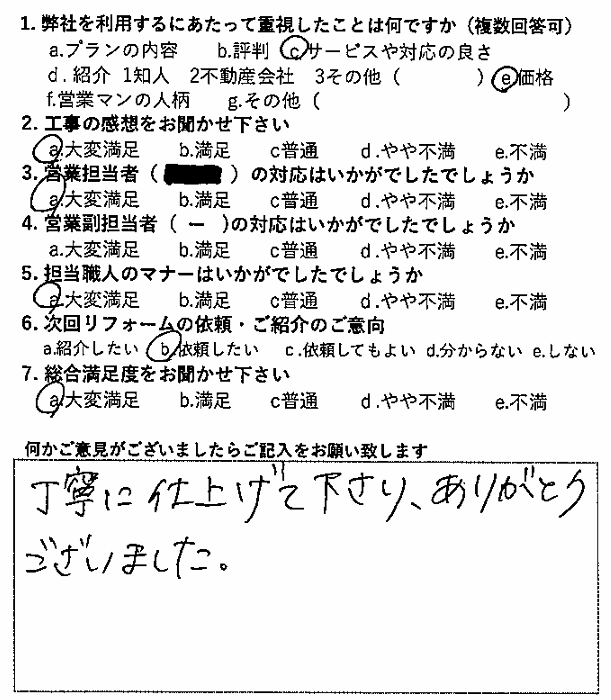 1. 弊社を利用するにあたって重視したことは何ですか（複数回答可）
a.プランの内容 b.評判 c.サービスや対応の良さ
d. 紹介 1知人 2不動産会社 3その他（ ） e.価格
f.営業マンの人柄 g.その他（ ）
2. 工事の感想をお聞かせ下さい
a.大変満足 b.満足 c普通 d.やや不満 e.不満
3. 営業担当者（ ）の対応はいかがでしたでしょうか
a.大変満足 b.満足 c普通 d.やや不満 e.不満
4. 営業副担当者（ ー ）の対応はいかがでしたでしょうか
a.大変満足 b.満足 c普通 d.やや不満 e.不満
5. 担当職人のマナーはいかがでしたでしょうか
a.大変満足 b.満足 c普通 d.やや不満 e.不満
6. 次回リフォームの依頼・ご紹介のご意向
a.紹介したい b.依頼したい c.依頼してもよい d.分からない e.しない
7. 総合満足度をお聞かせ下さい
a.大変満足 b.満足 c普通 d.やや不満 e.不満
何かご意見がございましたらご記入をお願い致します
丁寧に仕上げて下さり、ありがとう
ございました。